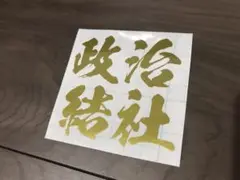 政治
結社